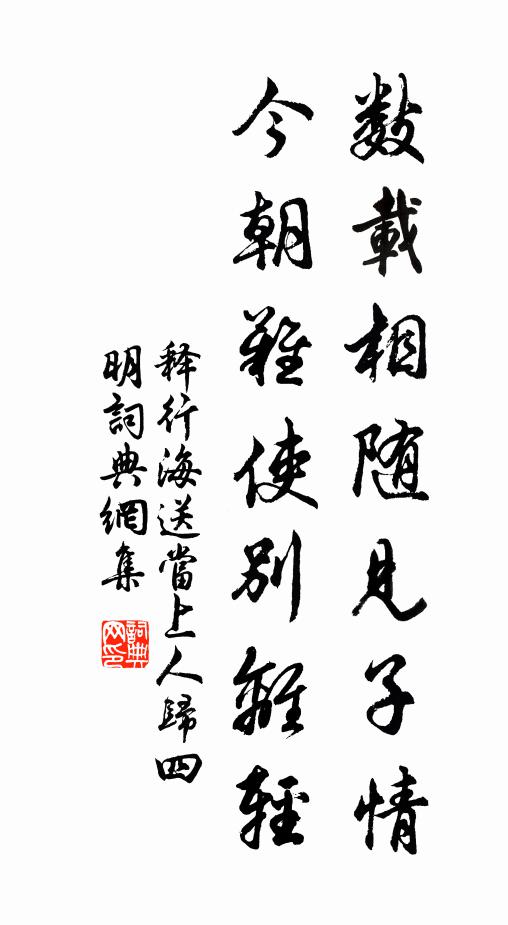 数載相随見子情
今朝難使別離輕
释行海送當上人歸四
明詞典網集
詞典
网印